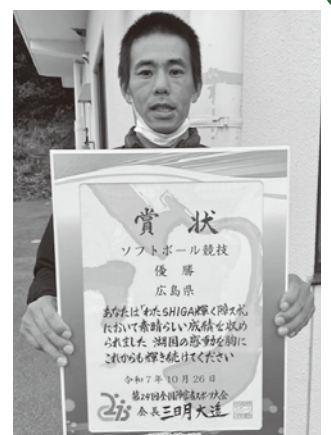 賞状
ソフトボール競技
優勝
広島県
あなたは「わたSHIGA輝く障スポ」
において素晴らしい成績を収め
られました 湖国の感動を胸に
これからも輝き続けてください
令和7年10月26日
第24回全国障害者スポーツ大会
会長 三日月大造